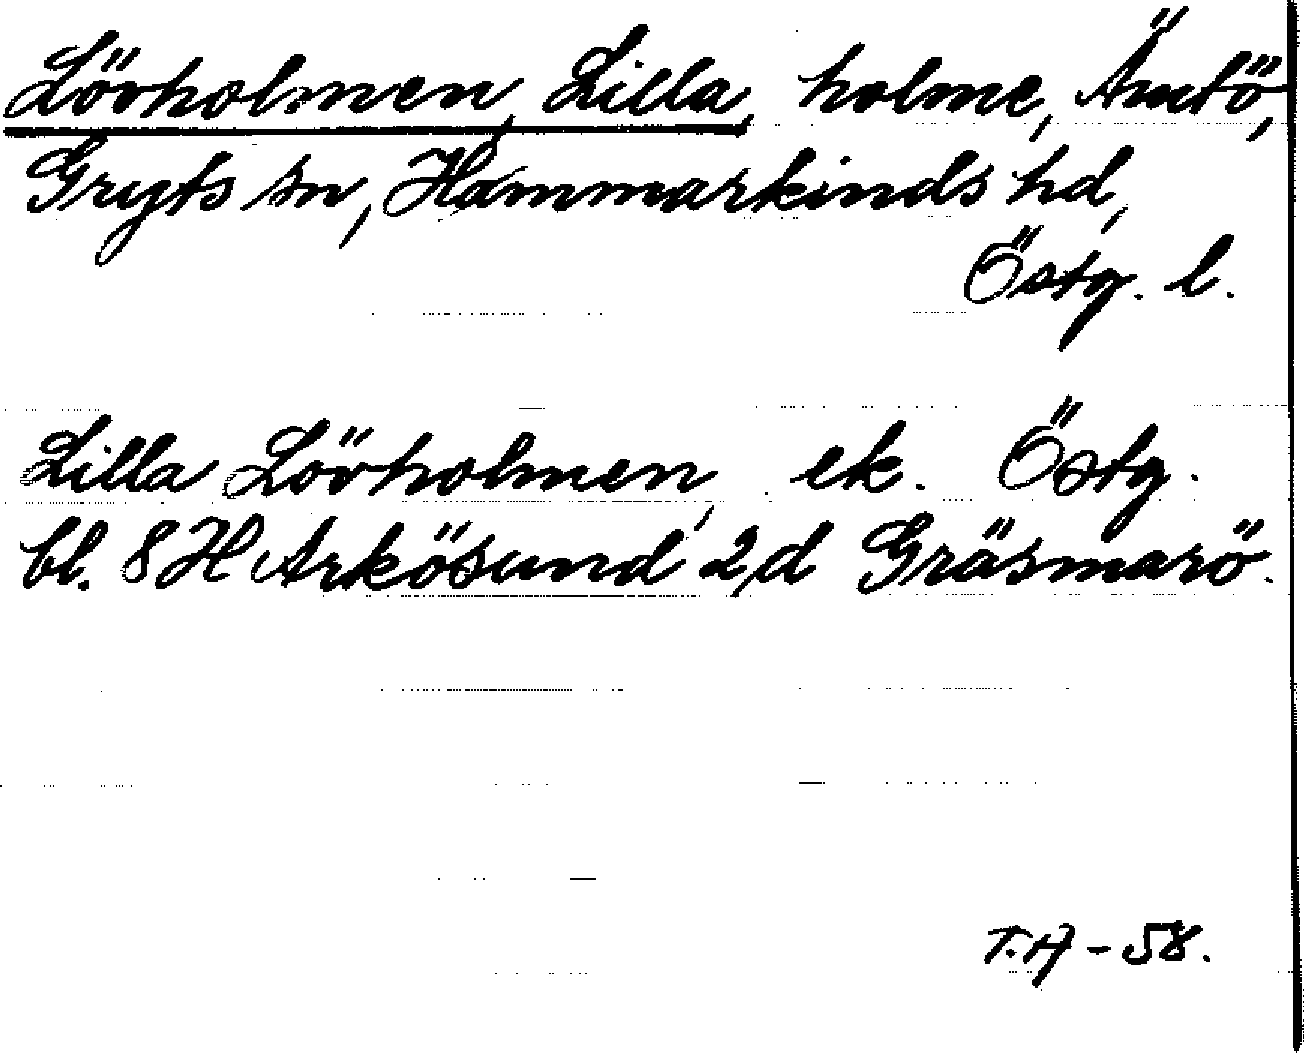 Lövholmen, Lilla, holme, Ämtö,
Gryts sn, Hammarkinds hd,
Östg. l.
Lilla Lövholmen, ek. Östg.
bl. 8H Arkösund 2,d Gräsmarö.
T.A - 58.